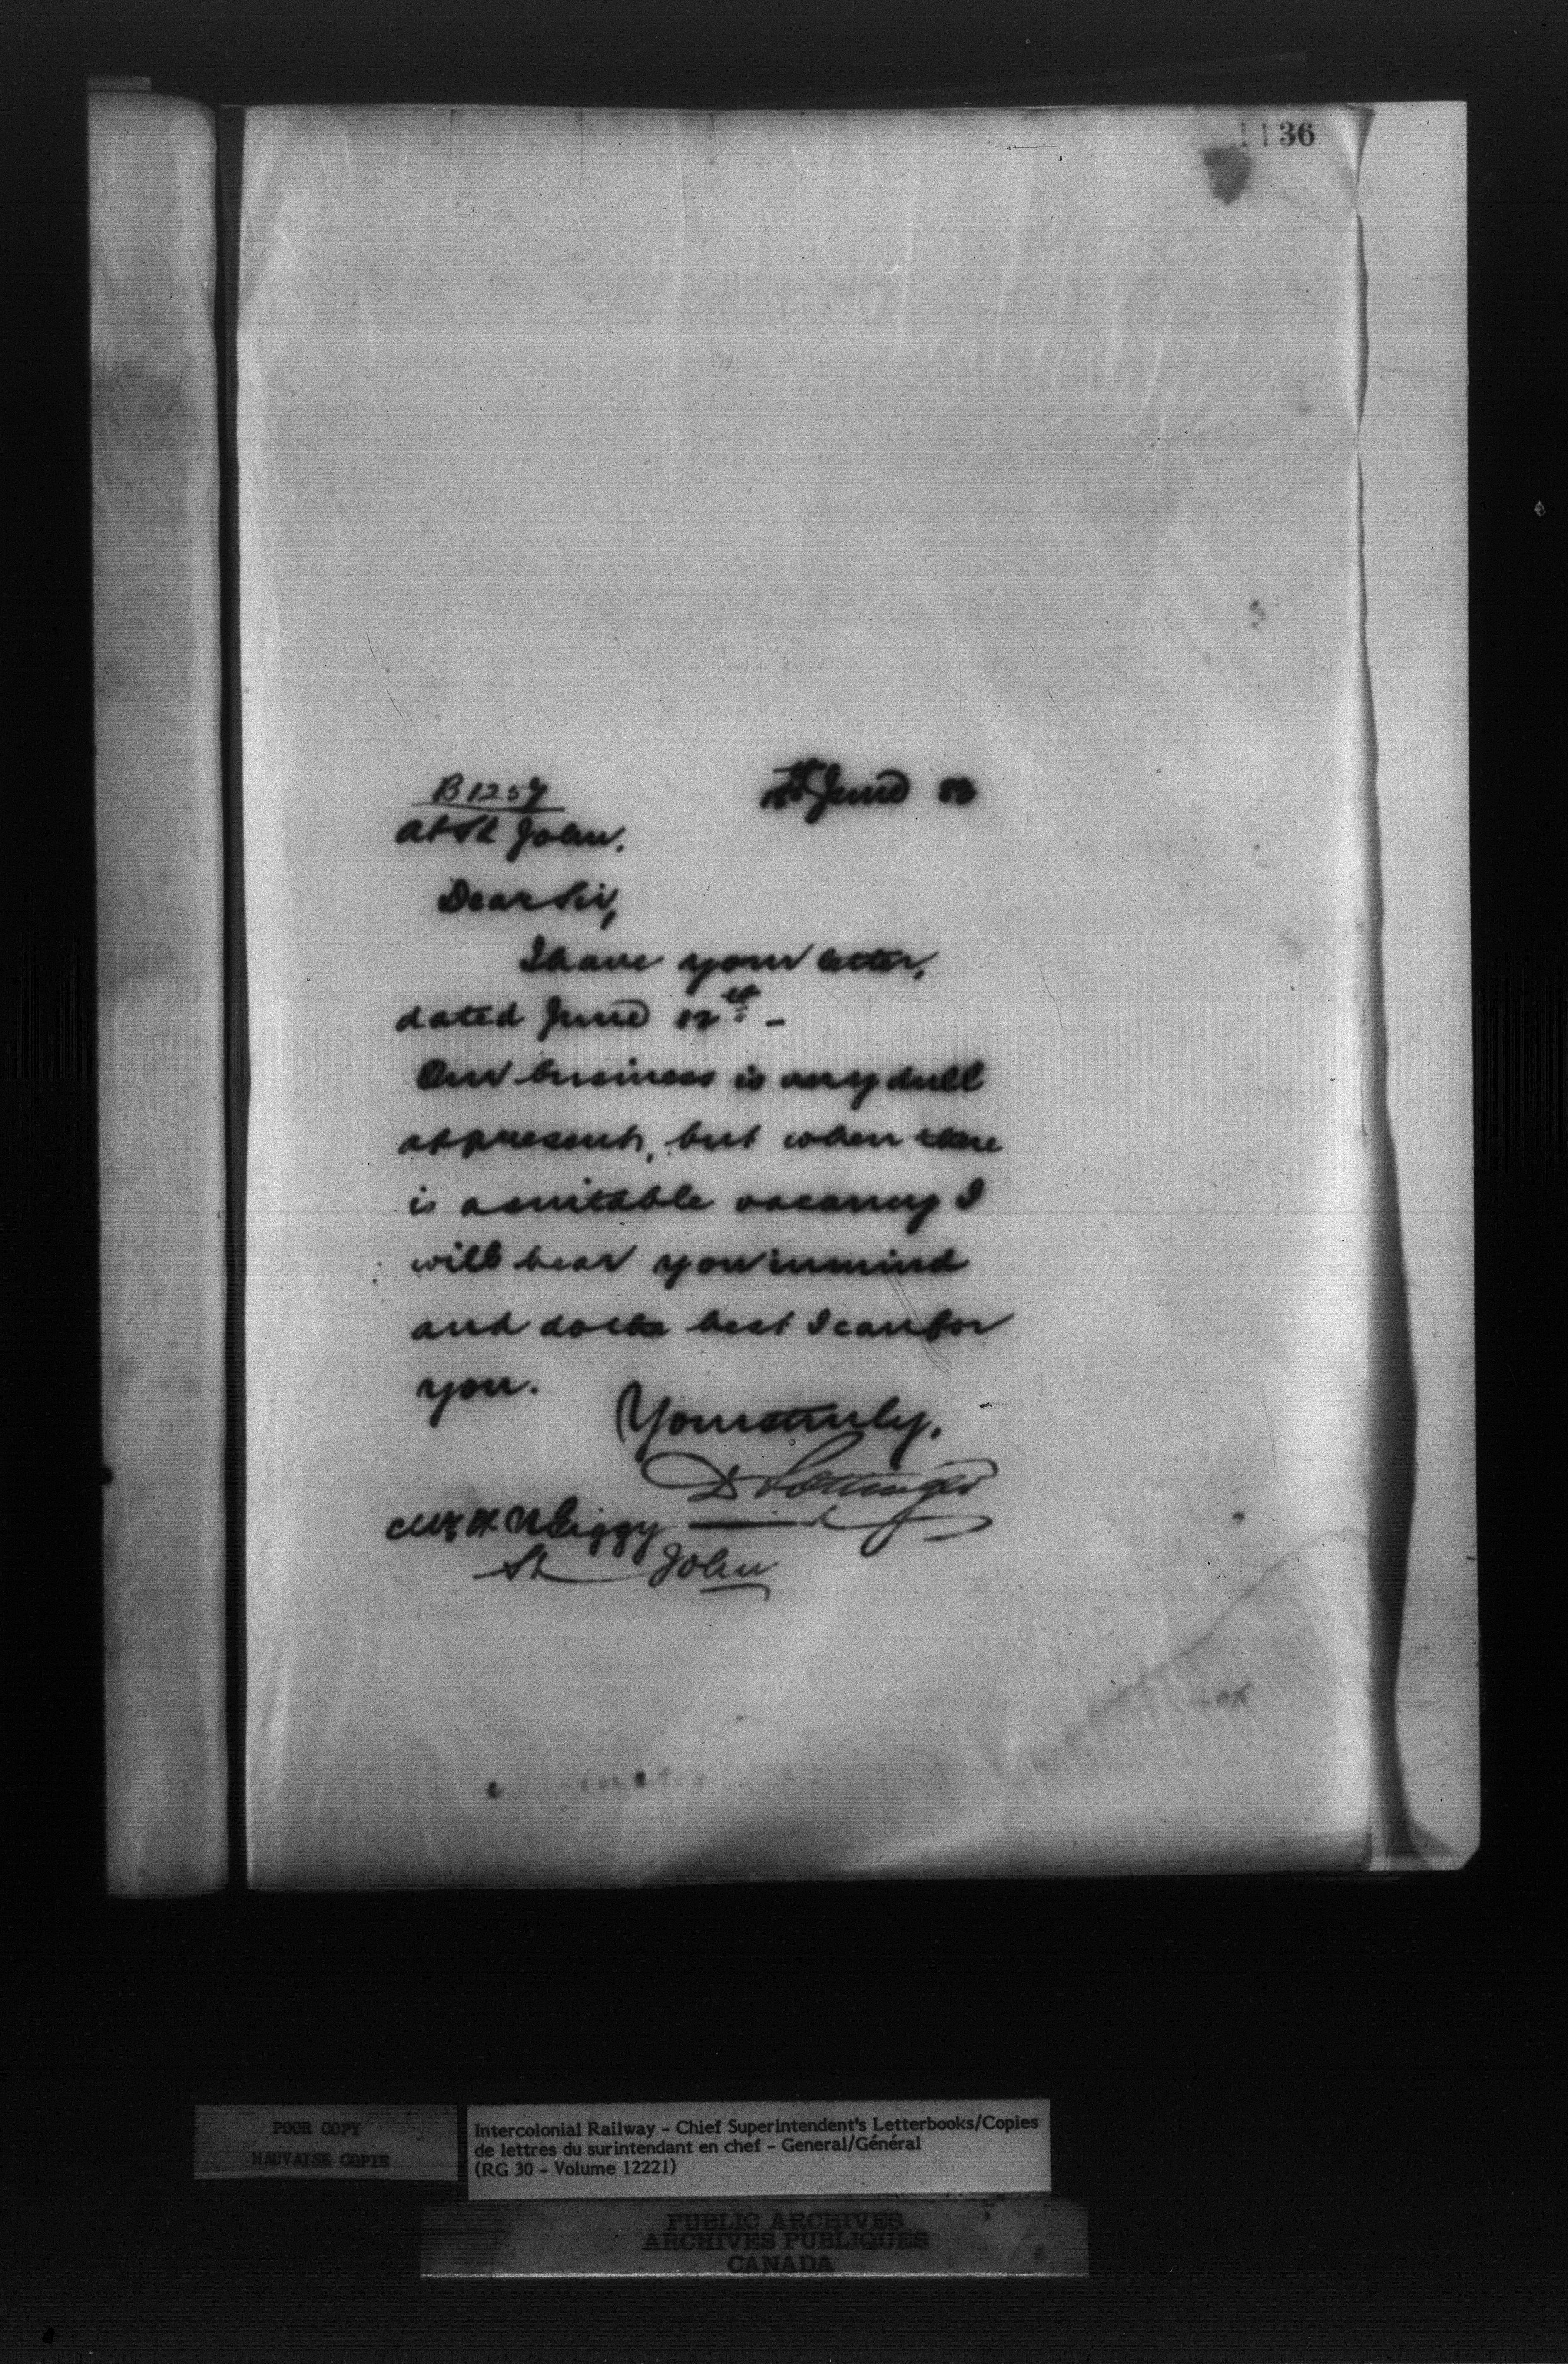 1136
B1257
June 83
At St John.
Dear Sir,
I have your letter,
dated June 12th -
Our business is very dull
at present, but when there
is a suitable vacancy I
will bear you in mind
and do the best I can for
you.
Yours truly,
D Pottinger
Mr H
St John
POOR COPY
MAUVAISE COPIE
Intercolonial Railway - Chief Superintendent's Letterbooks/Copies
de lettres du surintendant en chef - General/Général
(RG 30 - Volume 12221)
PUBLIC ARCHIVES
ARCHIVES PUBLIQUES
CANADA